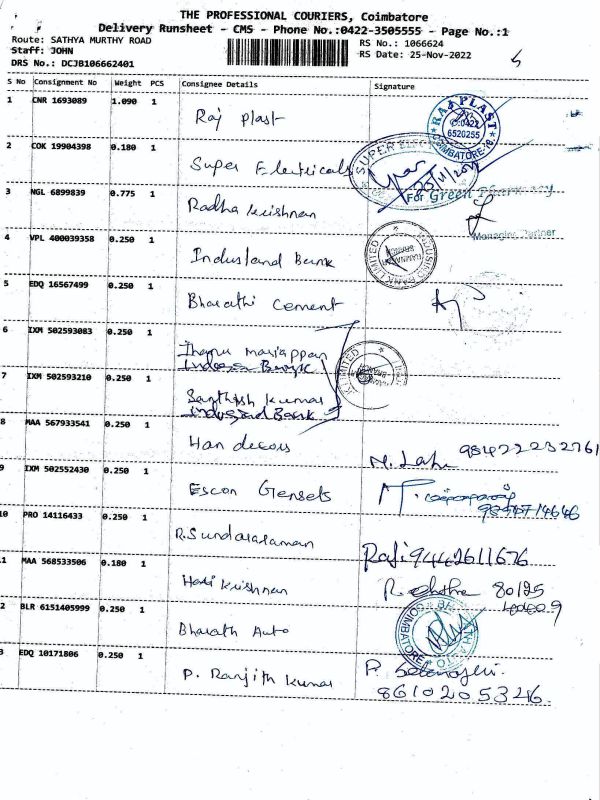 THE PROFESSIONAL COURIERS, Coimbatore
Delivery Runsheet - CMS - Phone No.:0422-3505555 - Page No.:1
Route: SATHYA MURTHY ROAD
RS No.: 1066624
Staff: JOHN
RS Date: 25-Nov-2022
DRS No.: DCJB106662401
S No Consignment No Weight PCS Consignee Details Signature
1 CNR 1693089 1.090 1 Raj Plast
RAJ PLAST
0422
6520255
COIMBATORE
2 COK 19904398 0.180 1 Super Electricals
SUPER ELEC
3 NGL 6899839 0.775 1 Radha krishnan
For Green Pharmacy
Managing Partner
4 VPL 400039358 0.250 1 Indusland Bank
INDUSIND BANK LIMITED
5 EDQ 16567499 0.250 1 Bharathi Cement
6 IXM 502593083 0.250 1 mariappan
7 IXM 502593210 0.250 1 Santhosh kumar
LIMITED
8 MAA 567933541 0.250 1 Han decors
9 IXM 502552430 0.250 1 Escon Gensets
10 PRO 14116433 0.250 1 R. Sundararaman
Raji 9442611676
1 MAA 568533506 0.180 1 Hari krishnan
80125
2 BLR 6151405999 0.250 1 Bharath Auto
COIMBATORE
3 EDQ 10171806 0.250 1 P. Ranjith kumar
8610205326